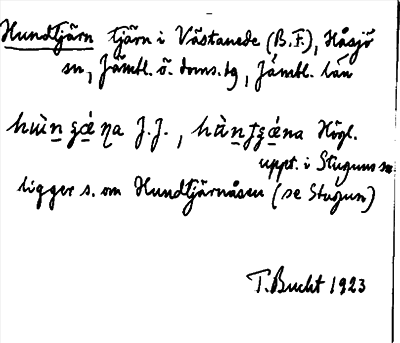 Hundtjärn tjärn i Västanede (B.F.), Håsjö
sn, Jämtl. ö. doms.bg, Jämtl. län
J.J., Högl.
uppt. i Stuguns sn
ligger s. om Hundtjärnåsen (se Stugun)
T. Bucht 1923